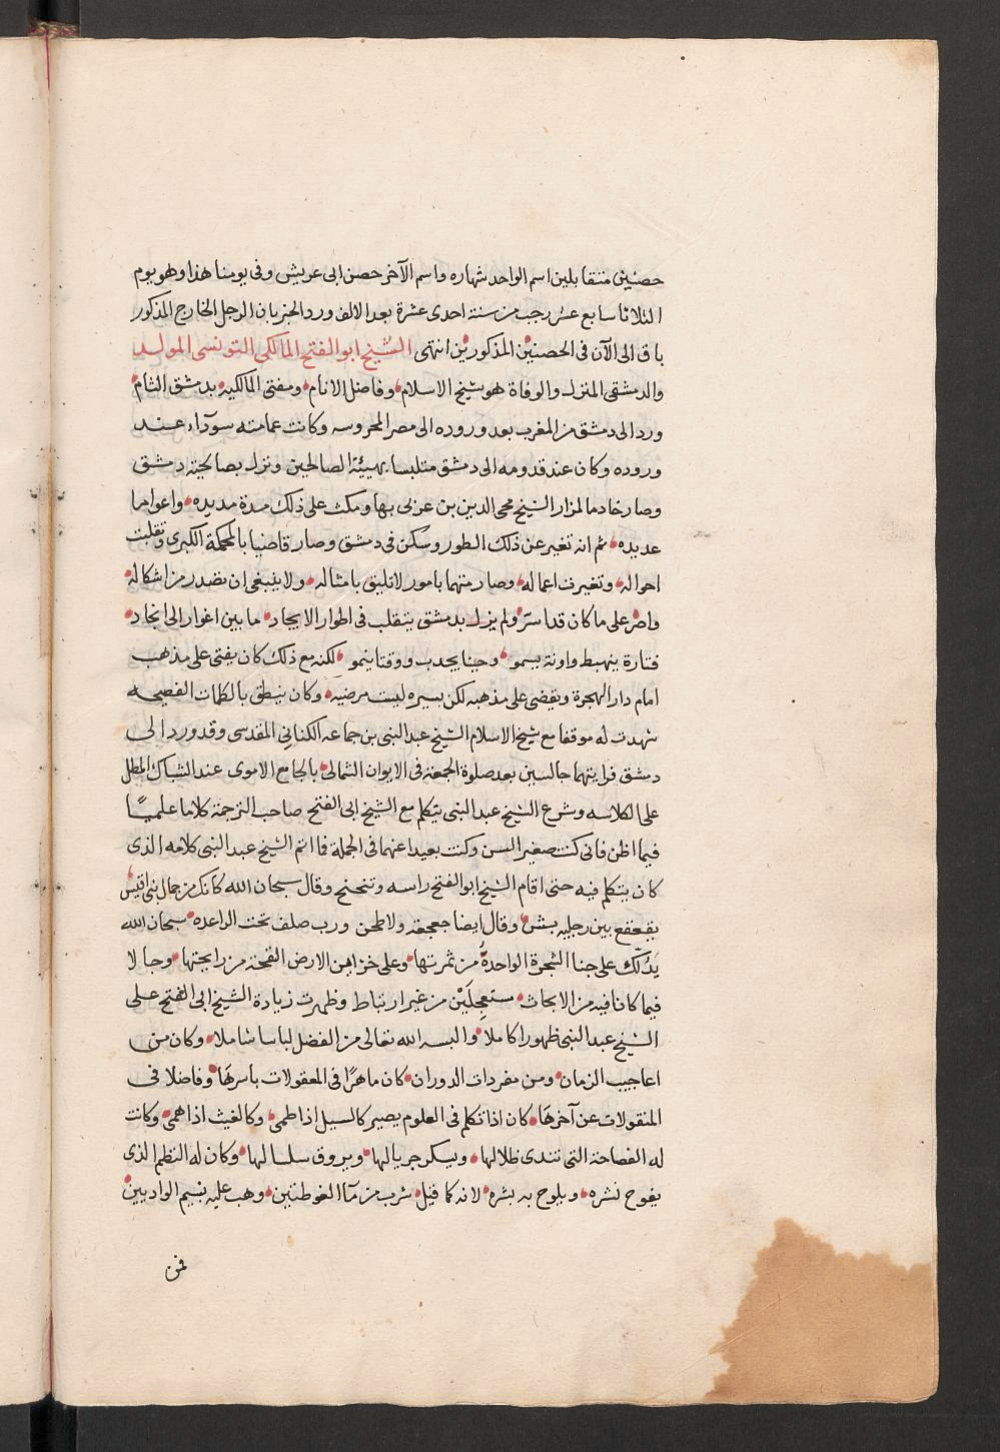 حصنين متقابلين اسم الواحد شهاره واسم الآخر حصن ابى عريش وفى يومنا هذا وهو يوم
الثلاثا سابع عشر رجب من سنة احدى عشرة بعد الالف ورد الخبر بان الرجل الخارج المذكور
باق الى الآن فى الحصنين المذكورين انتهى الشيخ ابو الفتح المالكى التونسى المولد
والدمشقى المنزل والوفاة هو شيخ الاسلام وفاضل الانام ومفتى المالكيه بدمشق الشام
ورد الى دمشق من المغرب بعد وروده الى مصر المحروسه وكانت عمامته سوداء عند
وروده وكان عند قدومه الى دمشق متلبسا بهيئة الصالحين ونزل بصالحية دمشق
وصار خادما لمزار الشيخ محى الدين بن عربى بها ومكث على ذلك مدة مديده واعواما
عديده ثم انه تغير عن ذلك الطور وسكن فى دمشق وصار قاضيا بالمحكمة الكبرى وتقلبت
احواله وتغيرت اعماله وصار متهما بامور لا تليق بامثاله ولا ينبغى ان تصدر من اشكاله
واصر على ما كان قد اسر ولم يزل بدمشق يتقلب فى اطوار الايجاد ما بين اغوار الى انجاد
فتارة يهبط واونة يسمو وحينا يجدب ووقتا ينمو لكنه مع ذلك كان يفتى على مذهب
امام دار الهجرة ويقضى على مذهبه لكن بسيره ليست مرضيه وكان ينطق بالكلمات الفصيحه
شهدت له موقفا مع شيخ الاسلام الشيخ عبد النبى بن جماعه الكنانى المقدسى وقد ورد الى
دمشق فرايتهما جالسين بعد صلوة الجمعة فى الايوان الشمالى بالجامع الاموى عند الشباك المطل
على الكلاسه وشرع الشيخ عبد النبى يتكلم مع الشيخ ابى الفتح صاحب الترجمة كلاما علميًا
فيما اظن فانى كنت صغير السن وكنت بعيدا عنهما فى الجملة فما اتم الشيخ عبد النبى كلامه الذى
كان يتكلم فيه حتى اقام الشيخ ابو الفتح راسه وتنحنح وقال سبحان الله كانك من جمال بنى اقيس
يقعقع بين رجليه بشن وقال ايضا جعجعة ولا طحن ورب صلف تحت الراعده سبحان الله
يدلك على جنا الشجرة الواحدة من ثمرتها وعلى خزامى الارض النفحة من رايحتها وجالا
فيما كانا فيه من الابحاث مستعجلين من غير ارتباط وظهرت زيادة الشيخ ابى الفتح على
الشيخ عبد النبى ظهورا كاملا والبسه الله تعالى من الفضل لباسا شاملا وكان من
اعاجيب الزمان ومن مفردات الدوران كان ماهرًا فى المعقولات باسرها وفاضلا فى
المنقولات عن آخرها كان اذا تكلم فى العلوم يصير كالسيل اذا طمى وكالغيث اذا همى وكانت
له الفصاحة التى تندى ظلالها ويسكر جريالها ويروق سلسالها وكان له النظم الذى
يفوح نشره ويلوح به بشره لانه كما قيل شرب من مآ الغوطتين وهب عليه نسيم الواديين
فمن